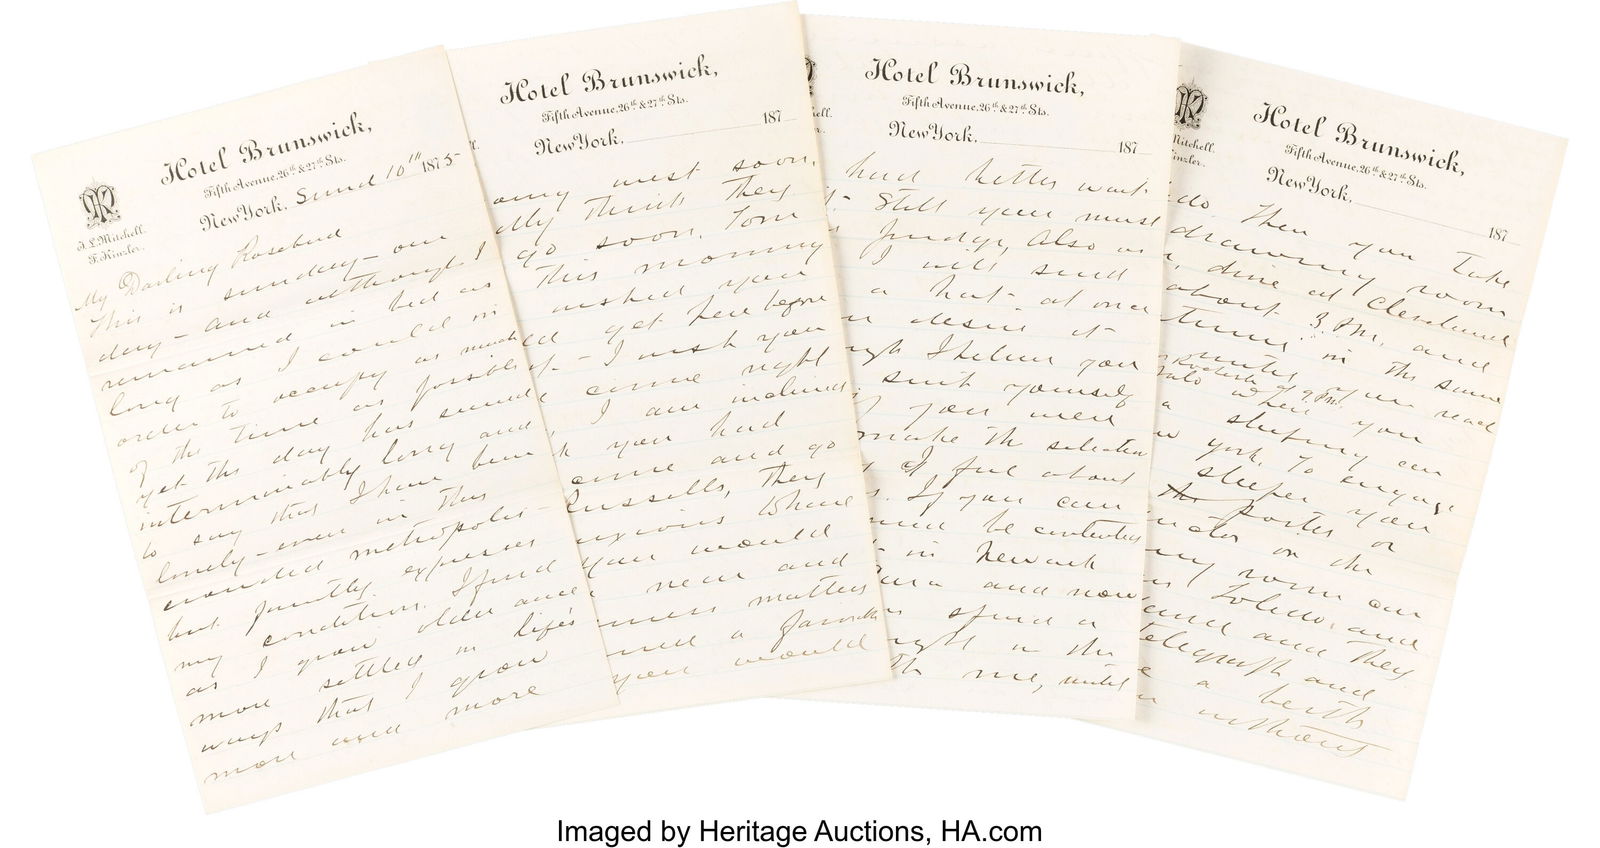 Hotel Brunswick,
Fifth Avenue, 26th & 27th Sts.
New York, Sund 10th 1875
J. L. Mitchell.
F. Kinzler.
My Darling Rosebud
This is sunday - our
day - and although I
remained in bed as
long as I could in
order to occupy as much
of the time as possible
yet the day has seemed
interminably long and
to say that I have been
lonely - even in this
crowded metropolis -
but faintly expresses
my condition. I find
as I grow older and
more settled in life's
ways that I grow
more and more
Hotel Brunswick,
Fifth Avenue, 26th & 27th Sts.
New York, 187
west soon.
think they
go soon. Tom
this morning
wished you
get here before
I wish you
come right
I am inclined
you had
come and go
Russells, they
anxious
you would
near and
matters
a
you would
Hotel Brunswick,
Fifth Avenue, 26th & 27th Sts.
New York, 187
had better wait
Still you must
judge, Also as
I will send
a hat at once
desire it
I believe you
suit yourself
if you were
make the selection
I feel about
If you can
be contented
in Newark
and now
spend a
night in the
me, until
Hotel Brunswick,
Fifth Avenue, 26th & 27th Sts.
New York, 187
Mitchell.
Kinzler.
do. Then you take
drawing room
dine at Cleveland
about 3. P.M. and
in the same
Rochester at 9 P.M.
reach
when you
a sleeping car
York. To engage
sleeper you
the porter or
on the
room car
Toledo, and
and they
telegraph and
a berth
without
Imaged by Heritage Auctions, HA.com